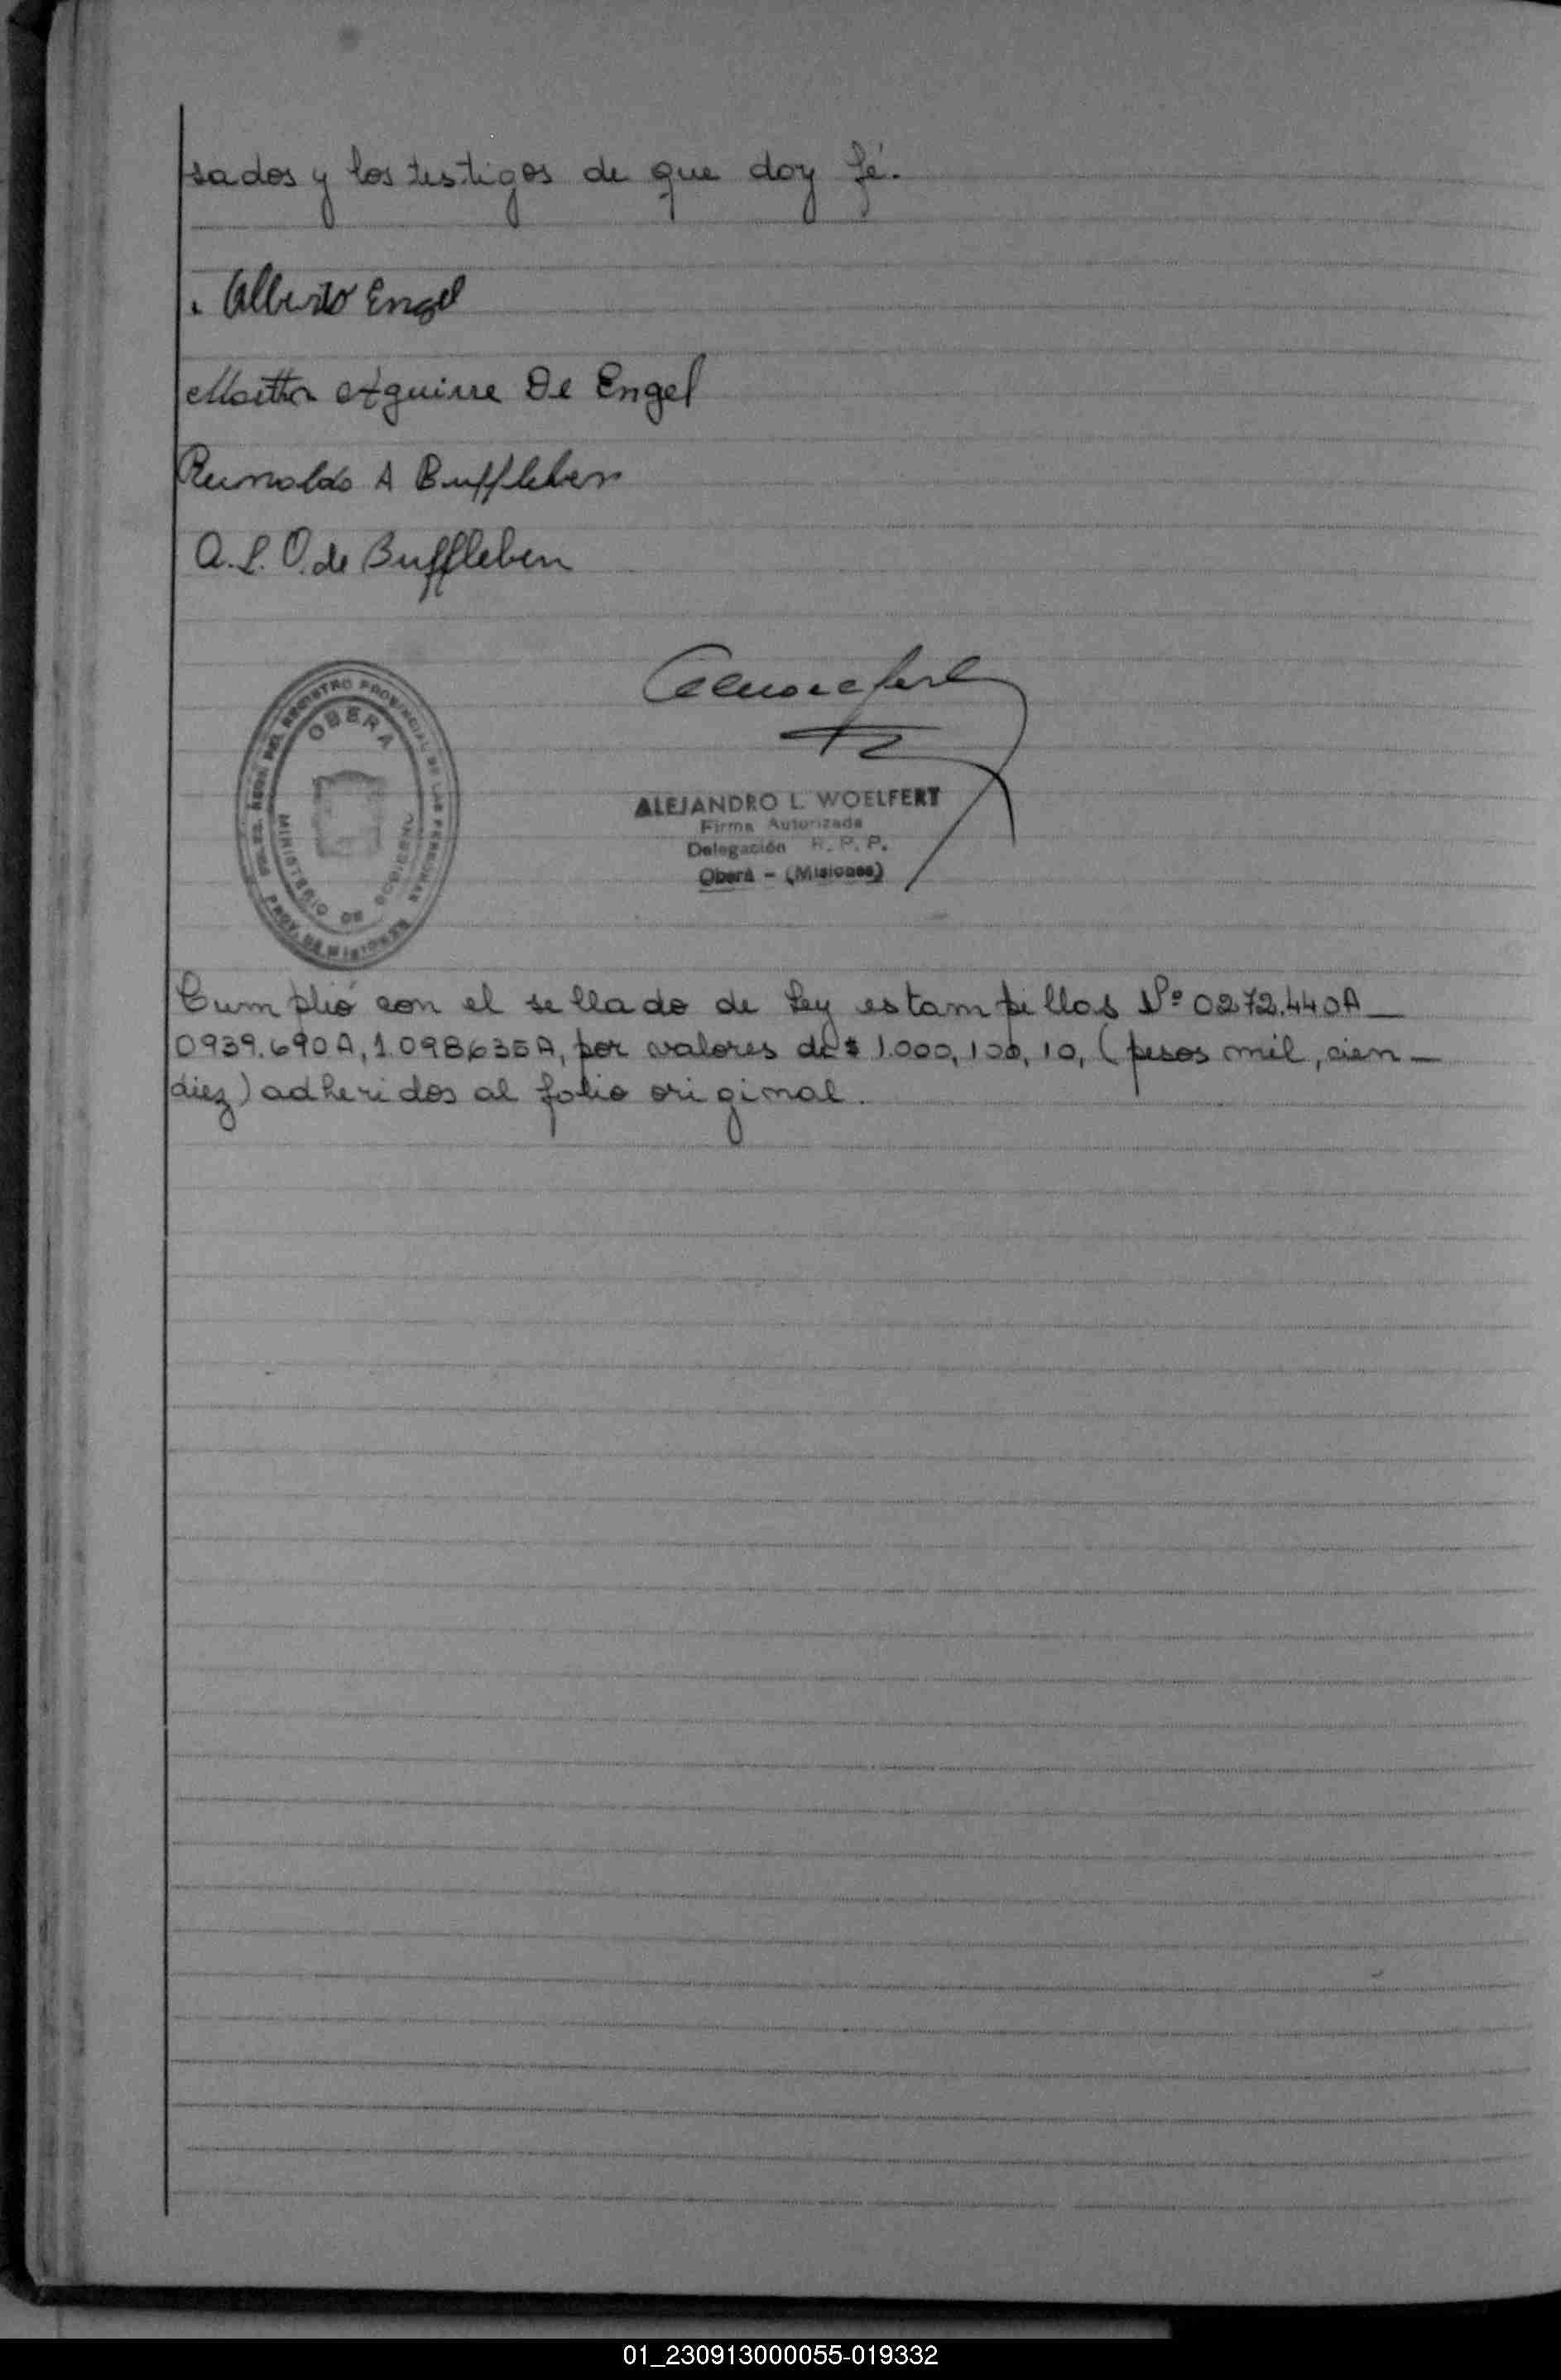 sados y los testigos de que doy fé.
Alberto Engel
Martha Aguirre De Engel
Reinoldo A Buffleben
A. L. O. de Buffleben
OBERA
MINISTERIO DE GOBIERNO
PROV. DE MISIONES
ALEJANDRO L. WOELFERT
Firma Autorizada
Delegación R. P. P.
Oberá - (Misiones)
Cumplió con el sellado de Ley estampillas Nº 0272.440A_
0939.690A, 1.098635A, por valores de $ 1.000, 100, 10, (pesos mil, cien -
diez) adheridos al folio original.
01_230913000055-019332